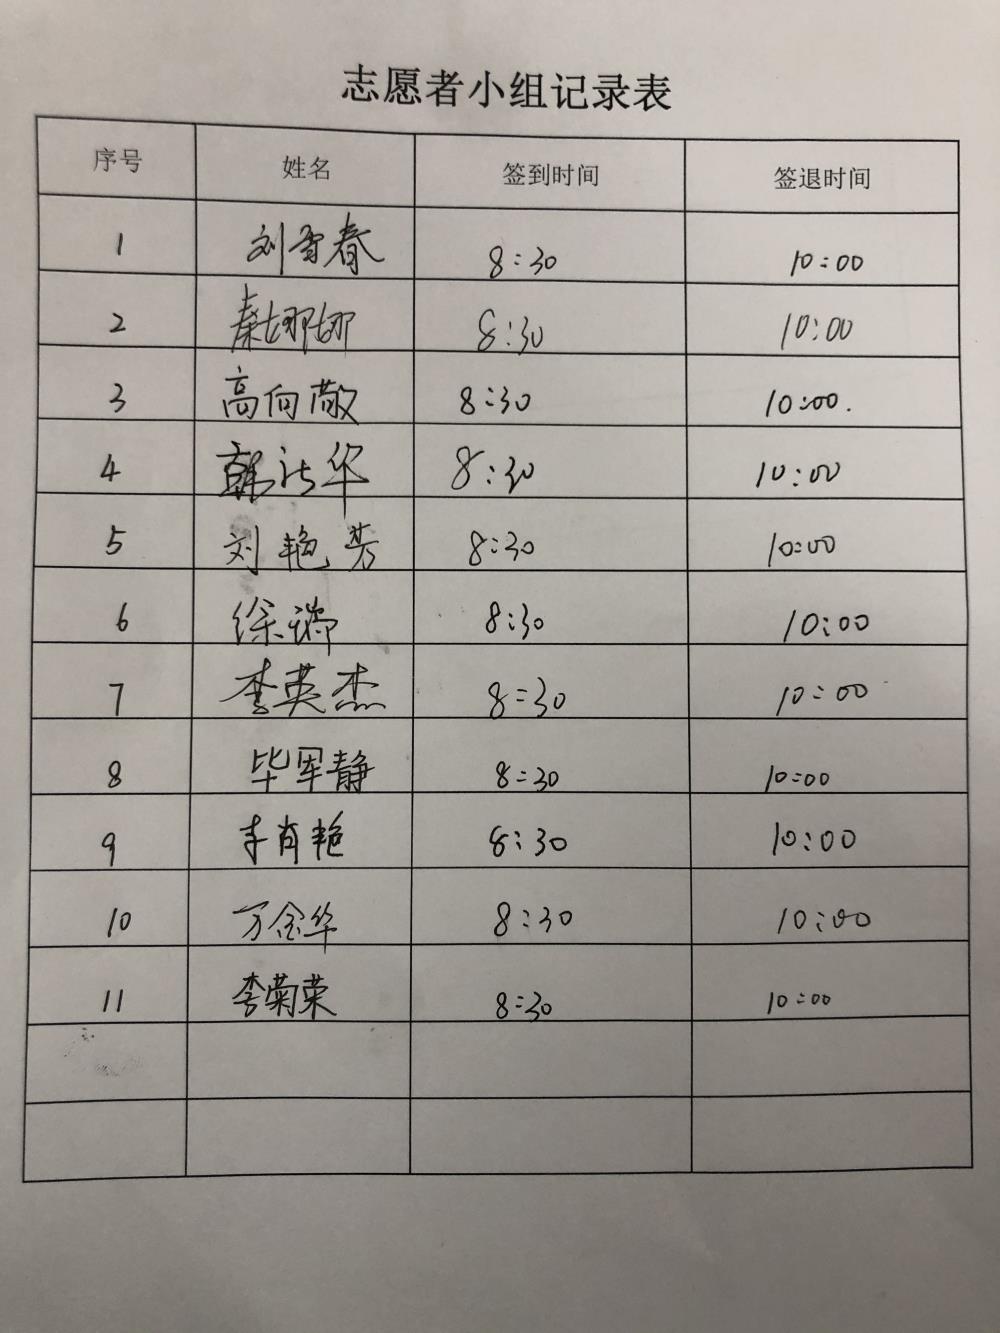 志愿者小组记录表
序号 姓名 签到时间 签退时间
1 刘雪春 8:30 10:00
2 秦娜娜 8:30 10:00
3 高向敏 8:30 10:00.
4 韩 华 8:30 10:00
5 刘艳芳 8:30 10:00
6 徐瑞 8:30 10:00
7 李英杰 8:30 10:00
8 毕军静 8:30 10:00
9 李肖艳 8:30 10:00
10 万金华 8:30 10:00
11 李菊荣 8:30 10:00